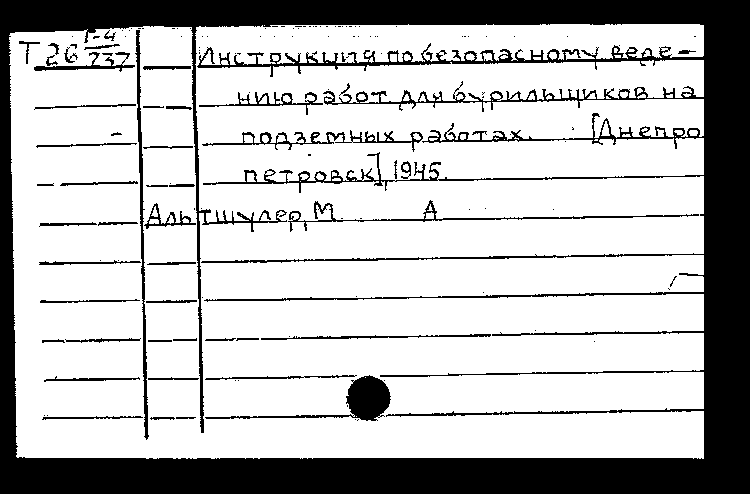 Т 26 Г-4/237 Инструкция по безопасному веде-
нию работ для бурильщиков на
подземных работах. [Днепро
петровск], 1945.
Альтшулер, М А